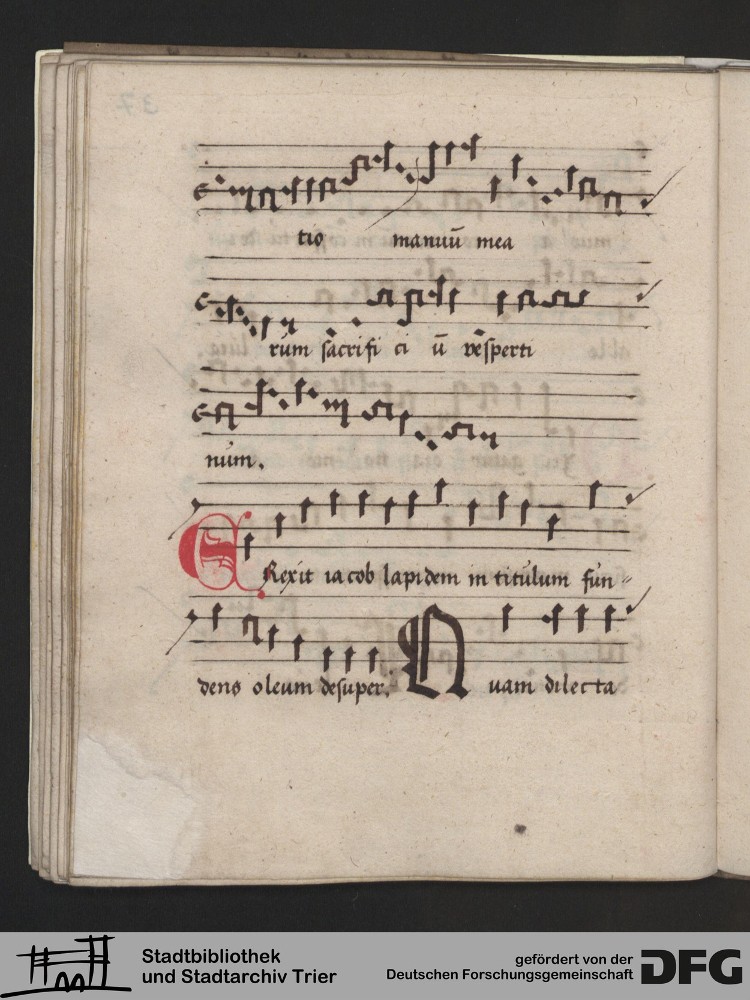 tio manuū mea
rum sacrifi ci ū vesperti
num.
ERexit iacob lapidem in titulum fun-
dens oleum desuper. Quam dilecta
Stadtbibliothek
und Stadtarchiv Trier
gefördert von der
Deutschen Forschungsgemeinschaft
DFG